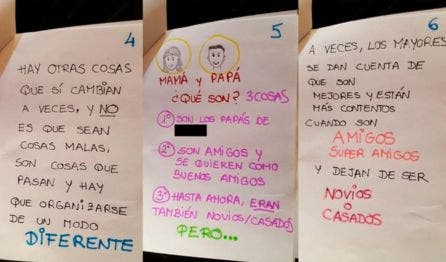 4
HAY OTRAS COSAS
QUE SÍ CAMBIAN
A VECES, Y NO
ES QUE SEAN
COSAS MALAS,
SON COSAS QUE
PASAN Y HAY
QUE ORGANIZARSE
DE UN MODO
DIFERENTE
5
MAMÁ Y PAPÁ
¿QUÉ SON? 3 COSAS
1º SON LOS PAPÁS DE
2º SON AMIGOS Y
SE QUIEREN COMO
BUENOS AMIGOS
3º HASTA AHORA, ERAN
TAMBIÉN NOVIOS/CASADOS
PERO...
6
A VECES, LOS MAYORES
SE DAN CUENTA DE
QUE SON
MEJORES Y ESTÁN
MÁS CONTENTOS
CUANDO SON
AMIGOS
SUPER AMIGOS
Y DEJAN DE SER
NOVIOS
O
CASADOS